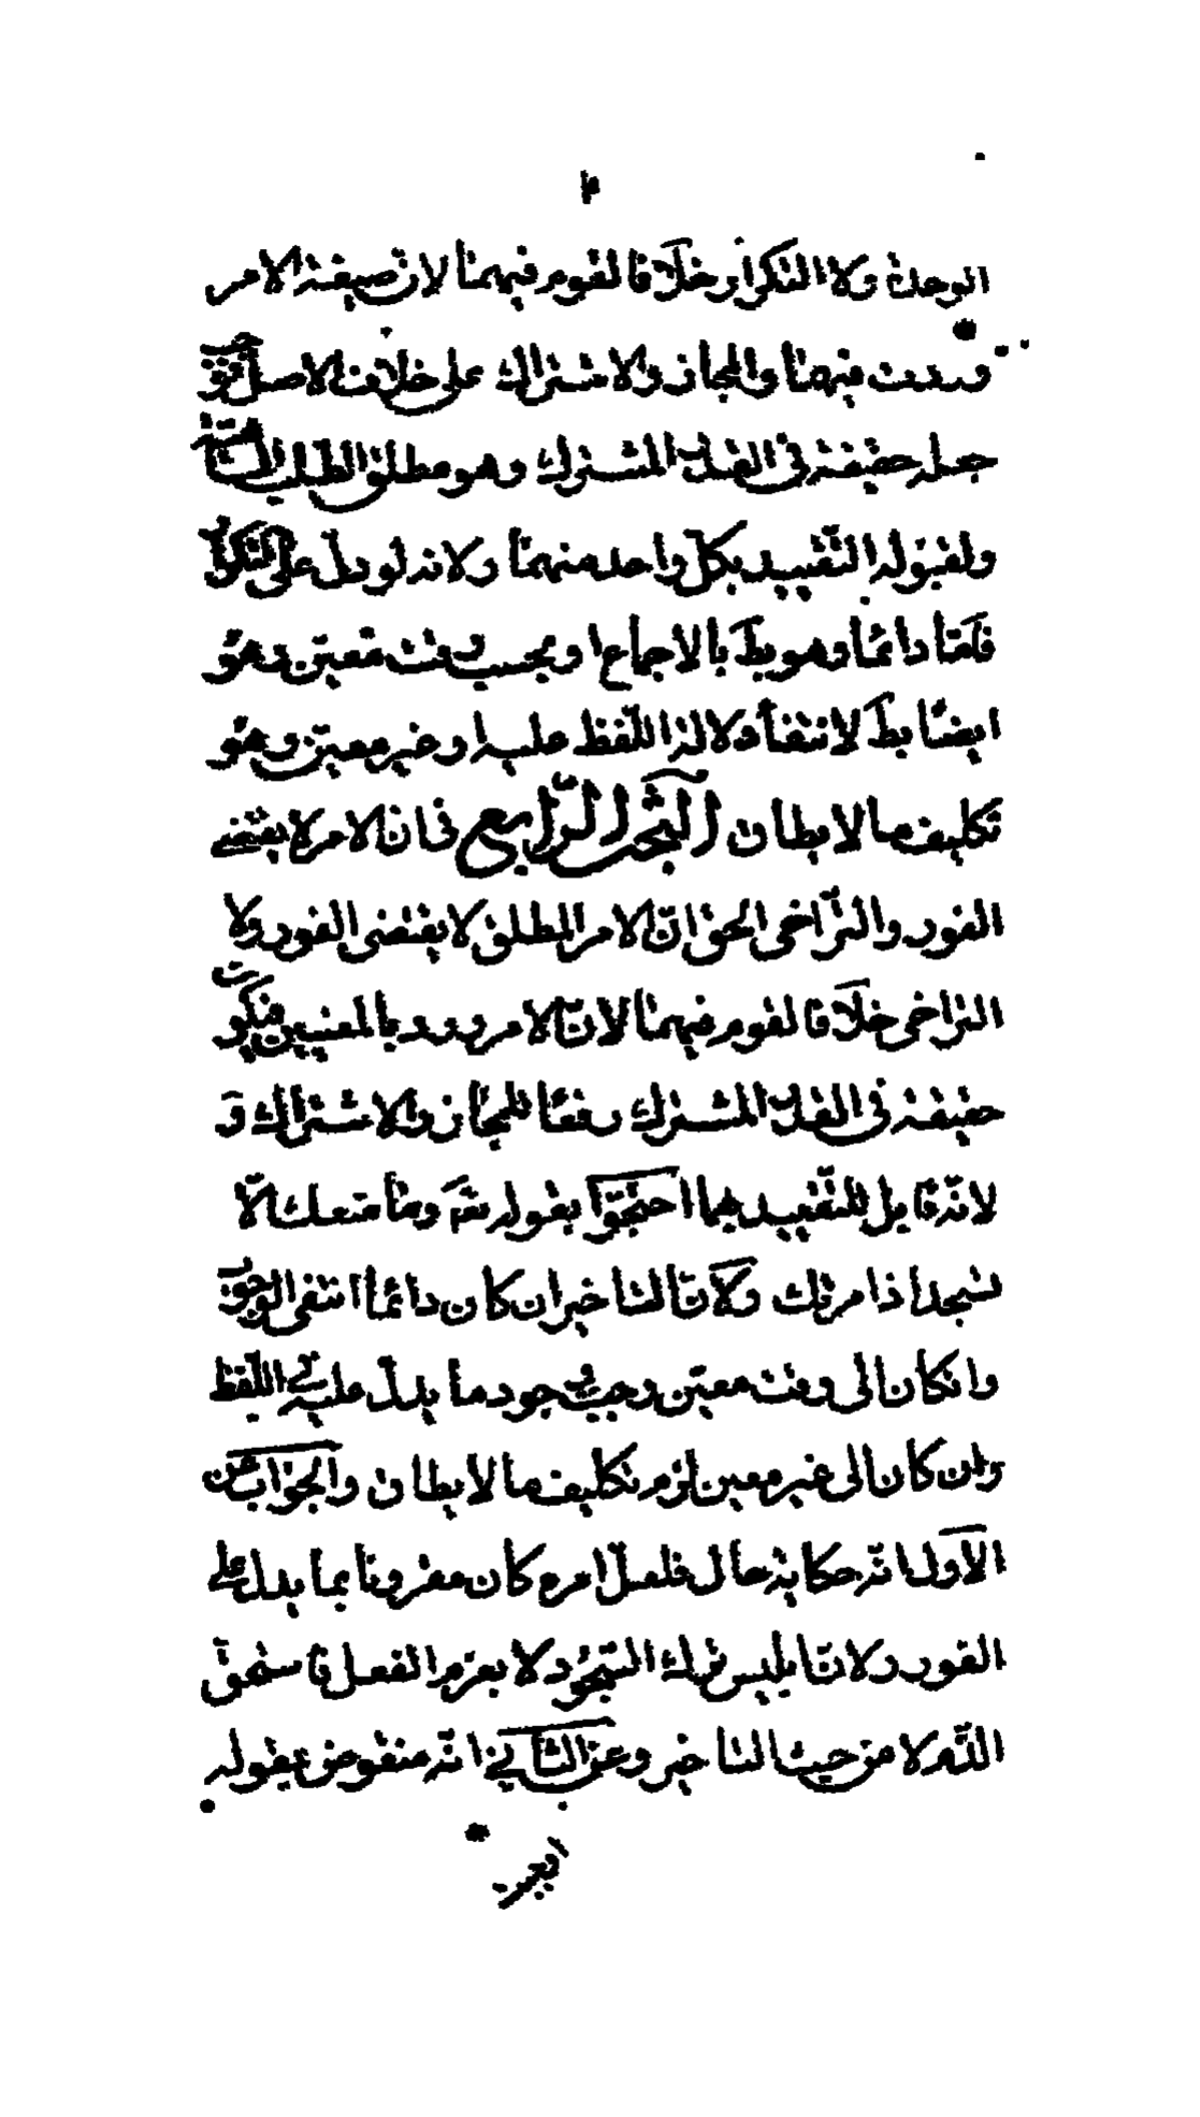 الوحدة ولا التكرار خلافا لقوم فيهما لان صيغة الامر
وردت فيهما والمجاز والاشتراك على خلاف الاصل فوجب
جعله حقيقة فى القدر المشترك وهو مطلق الطلب
ولقبوله التّقييد بكلّ واحد منهما ولانه لو دلّ على التكرار
فامّا دائما وهو بط بالاجماع او بحسب وقت معيّن وهو
ايضا بط لانتفاء دلالة اللّفظ عليه او غير معيّن وهو
تكليف ما لا يطاق البحث الرّابع فى ان الامر لا يقتضى
الفور والتّراخى الحق انّ الامر المطلق لا يقتضى الفور ولا
التراخى خلافا لقوم فيهما لانّ الامر ورد بالمعنيين فيكون
حقيقة فى القدر المشترك دفعا للمجاز والاشتراك و
لانّه قابل للتّقييد بهما احتجّوا بقوله تعالى وما منعك الّا
تسجد اذ امرتك ولانّ التاخير ان كان دائما انتفى الوجوب
وانكان الى وقت معيّن وجب وجود ما يدلّ عليه فى اللّفظ
وان كان الى غير معين لزم تكليف ما لا يطاق والجواب عن
الاول انّه حكاية حال فلعلّ امره كان مقرونا بما يدل على
الفور ولانّ ابليس ترك السّجود لا بعزم الفعل فاستحق
الذّم لا من حيث التاخير وعن الثانى انّه منقوض بقوله